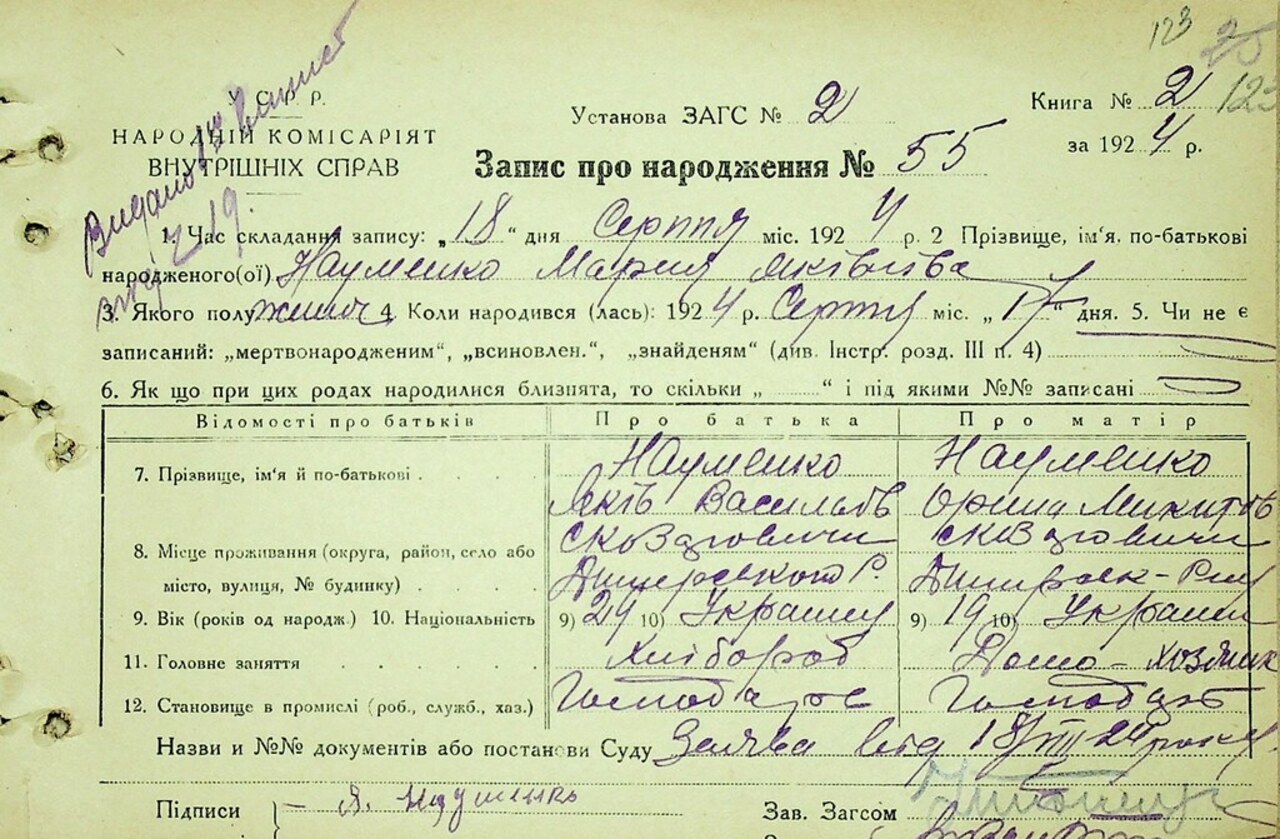 123
25
123
У. С. Р. Р.
НАРОДНІЙ КОМІСАРІЯТ
ВНУТРІШНІХ СПРАВ
Видано
Установа ЗАГС № 2
Книга № 2
за 1924 р.
Запис про народження № 55
1. Час складання запису: „18“ дня Серпня міс. 1924 р. 2 Прізвище, ім'я, по-батькові
народженого(ої) Науменко Мария Яківлева
3. Якого полу жіноч 4. Коли народився (лась): 1924 р. Серпня міс. „17“ дня. 5. Чи не є
записаний: „мертвонародженим“, „всиновлен.“, „знайденям“ (див. Інстр. розд. III п. 4)
6. Як що при цих родах народилися близнята, то скільки „ “ і під якими №№ записані
Відомості про батьків Про батька Про матір
7. Прізвище, ім'я й по-батькові Науменко Науменко
Яків Васильов Орина Микитов
8. Місце проживання (округа, район, село або
місто, вулиця, № будинку) Димерського Р.
9. Вік (років од народж.) 10. Національність 9) 29 10) 9) 19 10)
11. Головне заняття Хлібороб Домо-хозяик
12. Становище в промислі (роб., служб., хаз.) Господарь Господар
Назви и №№ документів або постанови Суду Заява від 18/VIII 24 року
Підписи Я. Науменко Зав. Загсом